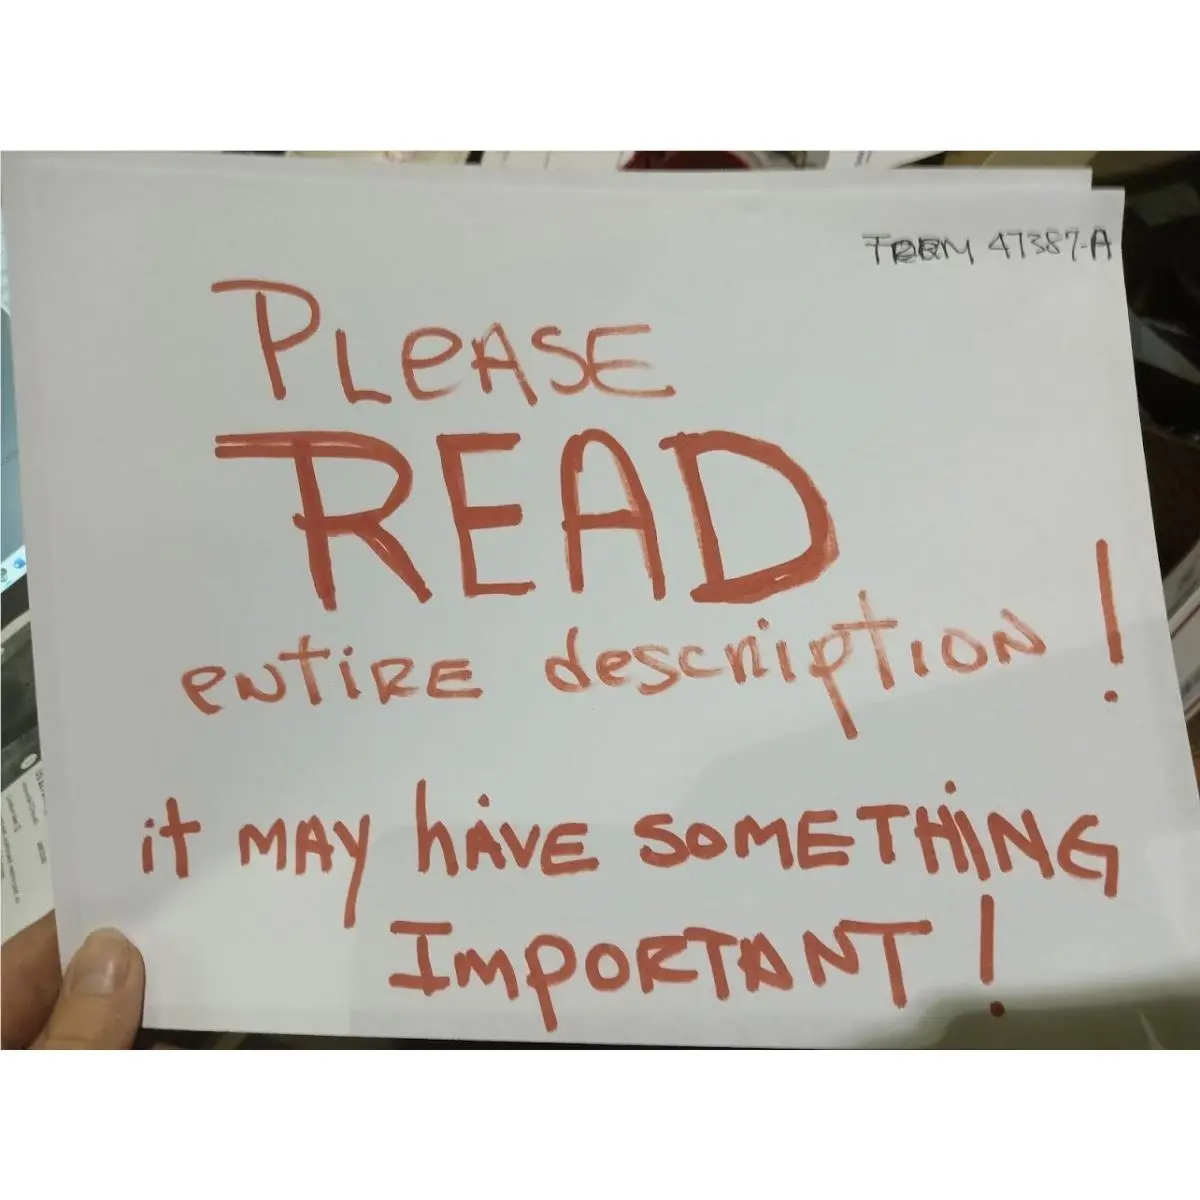 47387-A
PLeASE
READ
eNTiRE descriptioN !
it MAY hAVE SOMETHiNG
IMpORTANT !